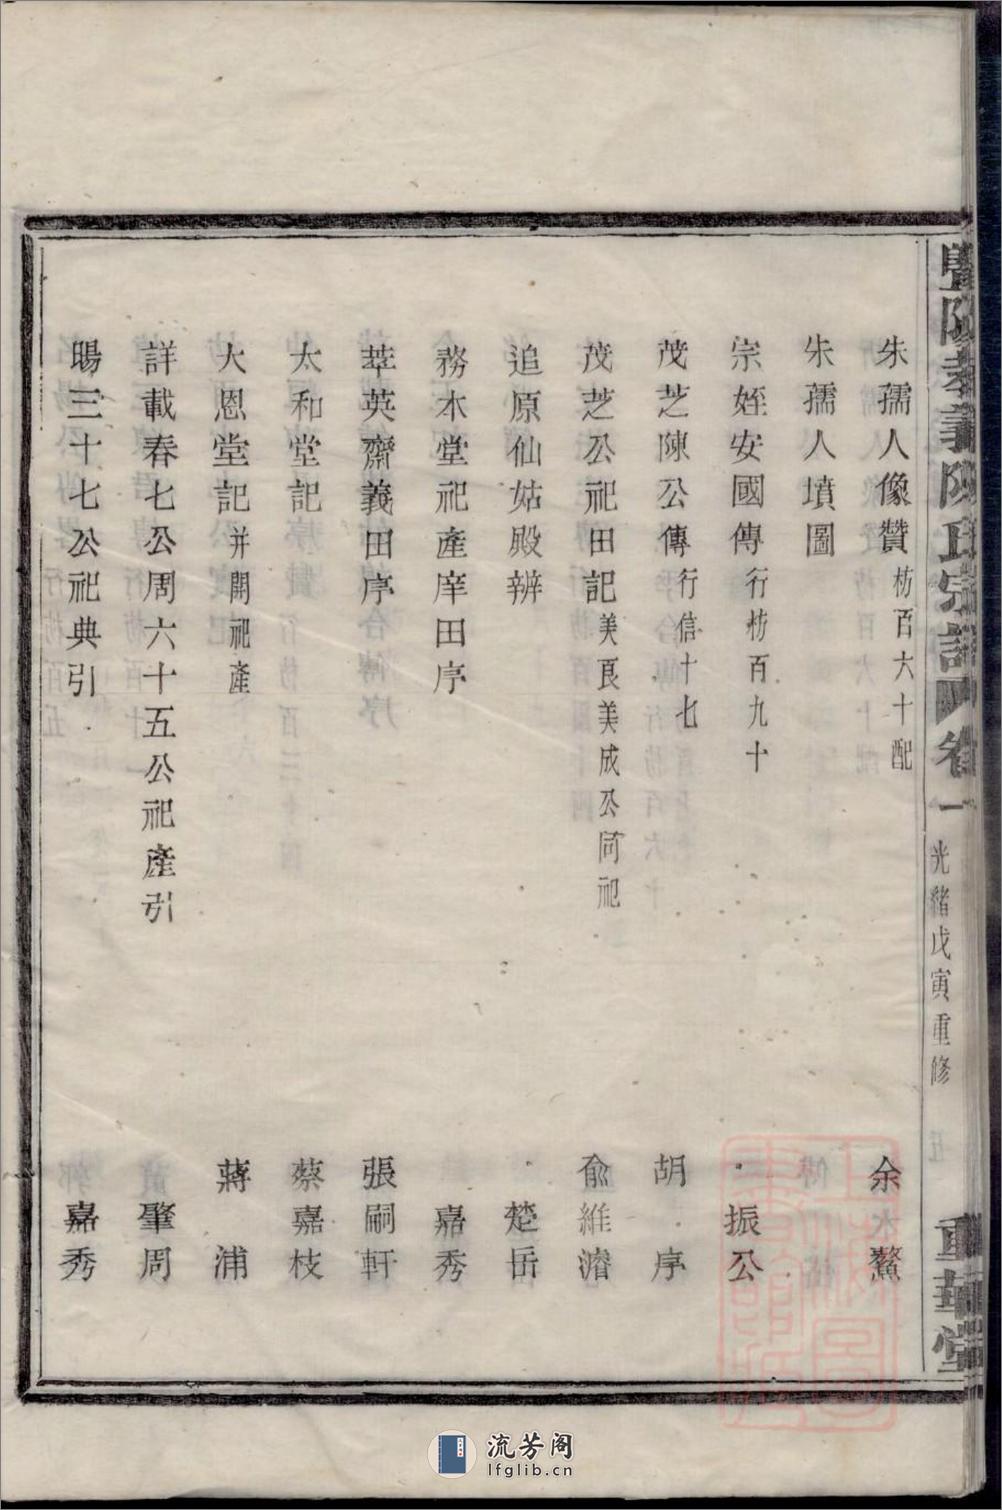 暨陽孝義陳氏宗譜 卷一 光緒戊寅重修 五 重華堂
朱孺人像贊 枋百六十配 余 鰲
朱孺人墳圖
宗姪安國傳 行枋百九十 振公
茂芝陳公傳 行信十七 胡序
茂芝公祀田記 美良美成公同祀 俞維濬
追原仙姑殿辨 楚岳
務本堂祀產庠田序 嘉秀
萃英齋義田序 張嗣軒
太和堂記 蔡嘉枝
大恩堂記 并開祀產 蔣浦
詳載春七公周六十五公祀產引 肇周
暘三十七公祀典引 嘉秀
流芳阁
lfglib.cn